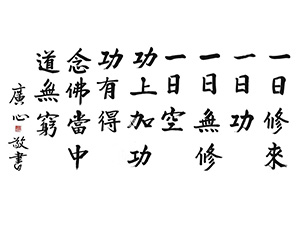 一日修來
一日功
一日無修
一日空
功上加功
功有得
念佛當中
道無窮
廣心敬書